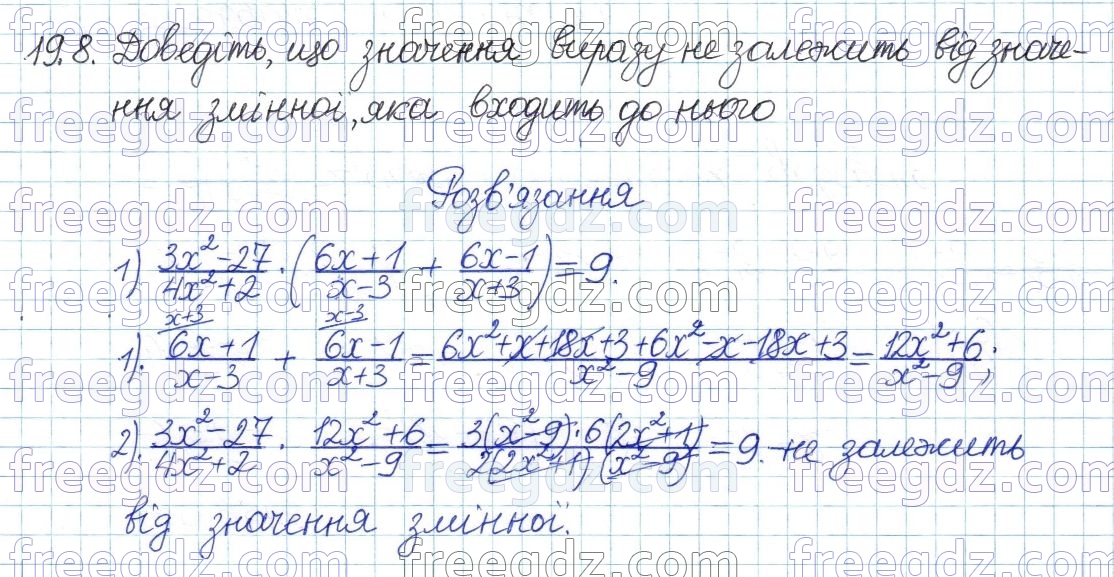 19.8. Доведіть, що значення виразу не залежить від значе-
ння змінної, яка входить до нього
Розв'язання
1) (3x²-27)/(4x²+2) · ((6x+1)/(x-3) + (6x-1)/(x+3)) = 9.
x+3 x-3
1). (6x+1)/(x-3) + (6x-1)/(x+3) = (6x²+x+18x+3+6x²-x-18x+3)/(x²-9) = (12x²+6)/(x²-9);
2). (3x²-27)/(4x²+2) · (12x²+6)/(x²-9) = (3(x²-9)·6(2x²+1))/(2(2x²+1)(x²-9)) = 9. - не залежить
від значення змінної.
freegdz.com